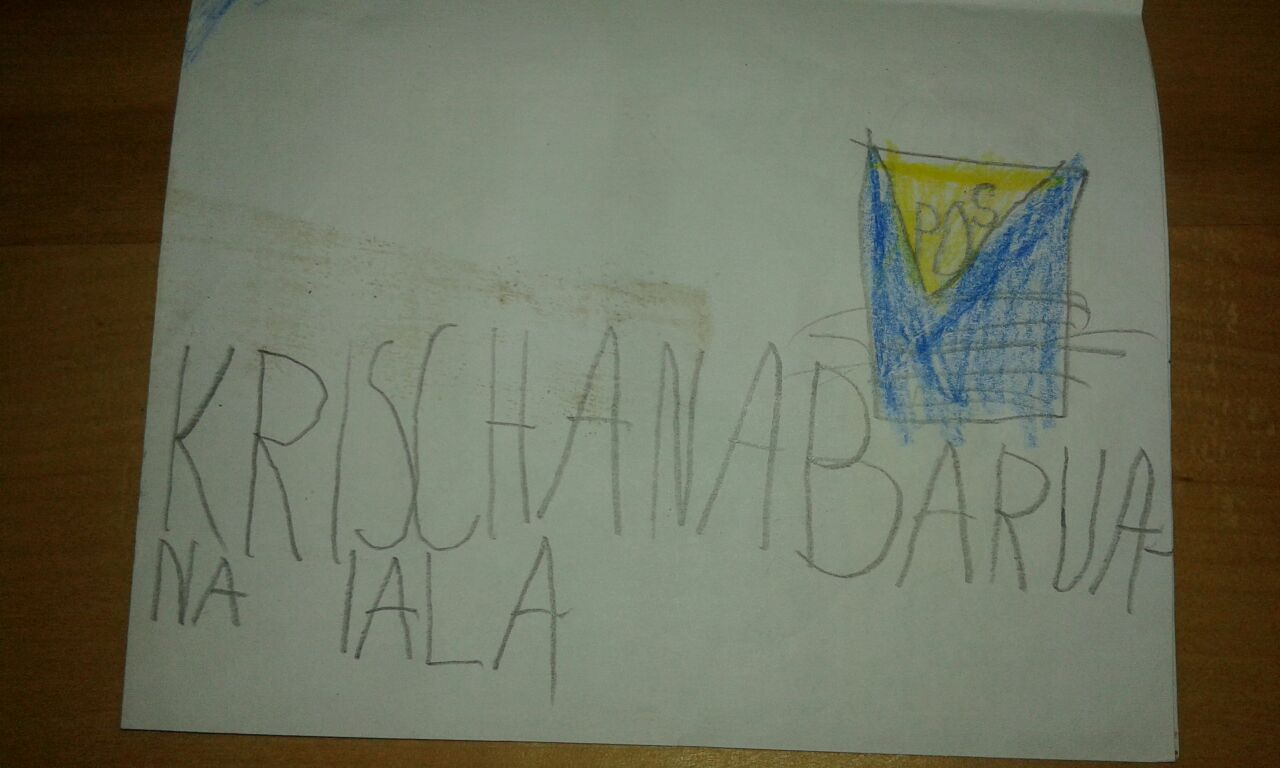 POS
KRISCHANABARUA-
NA IALA